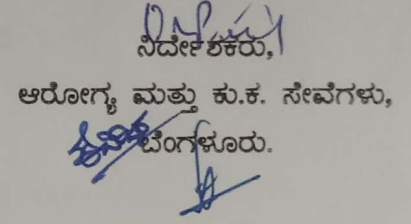 ನಿರ್ದೇಶಕರು,
ಆರೋಗ್ಯ ಮತ್ತು ಕು.ಕ. ಸೇವೆಗಳು,
ಬೆಂಗಳೂರು.